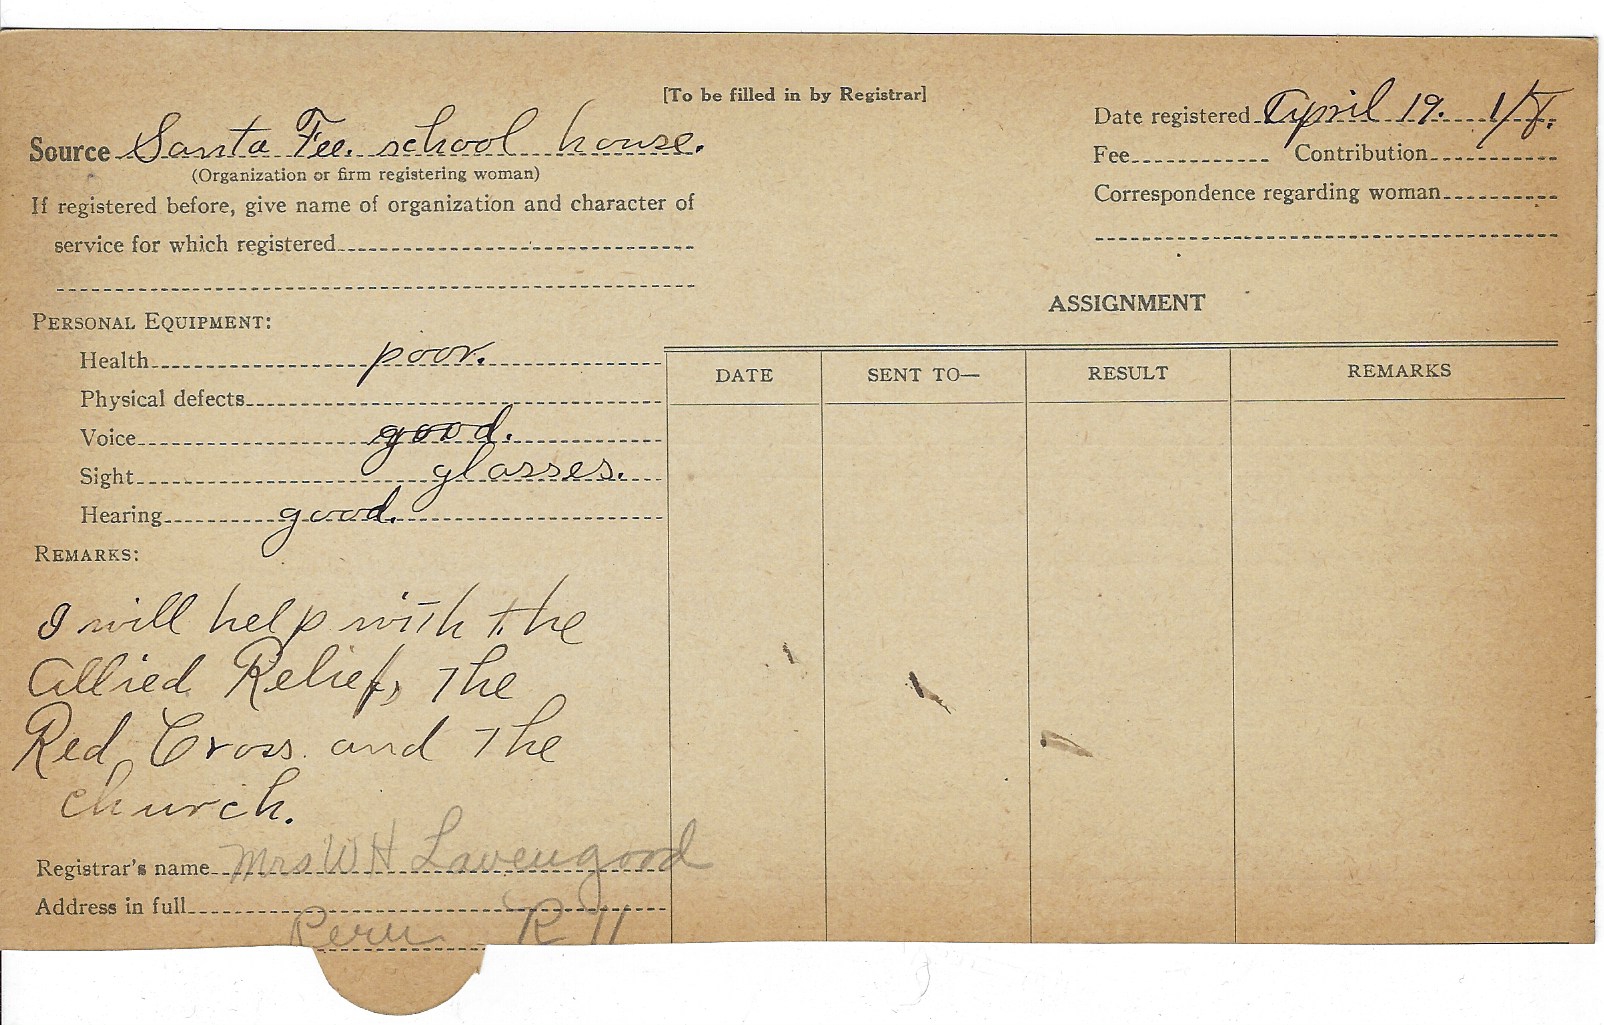 [To be filled in by Registrar]
Source Santa Fee. school house.
(Organization or firm registering woman)
If registered before, give name of organization and character of
service for which registered
Date registered April 19.
Fee Contribution
Correspondence regarding woman
PERSONAL EQUIPMENT:
Health poor.
Physical defects
Voice good.
Sight glasses.
Hearing good.
REMARKS:
I will help with the
Allied Relief, the
Red Cross and the
church.
Registrar's name Mrs W H Lavengood
Address in full
Peru R 11
ASSIGNMENT
DATE SENT TO— RESULT REMARKS